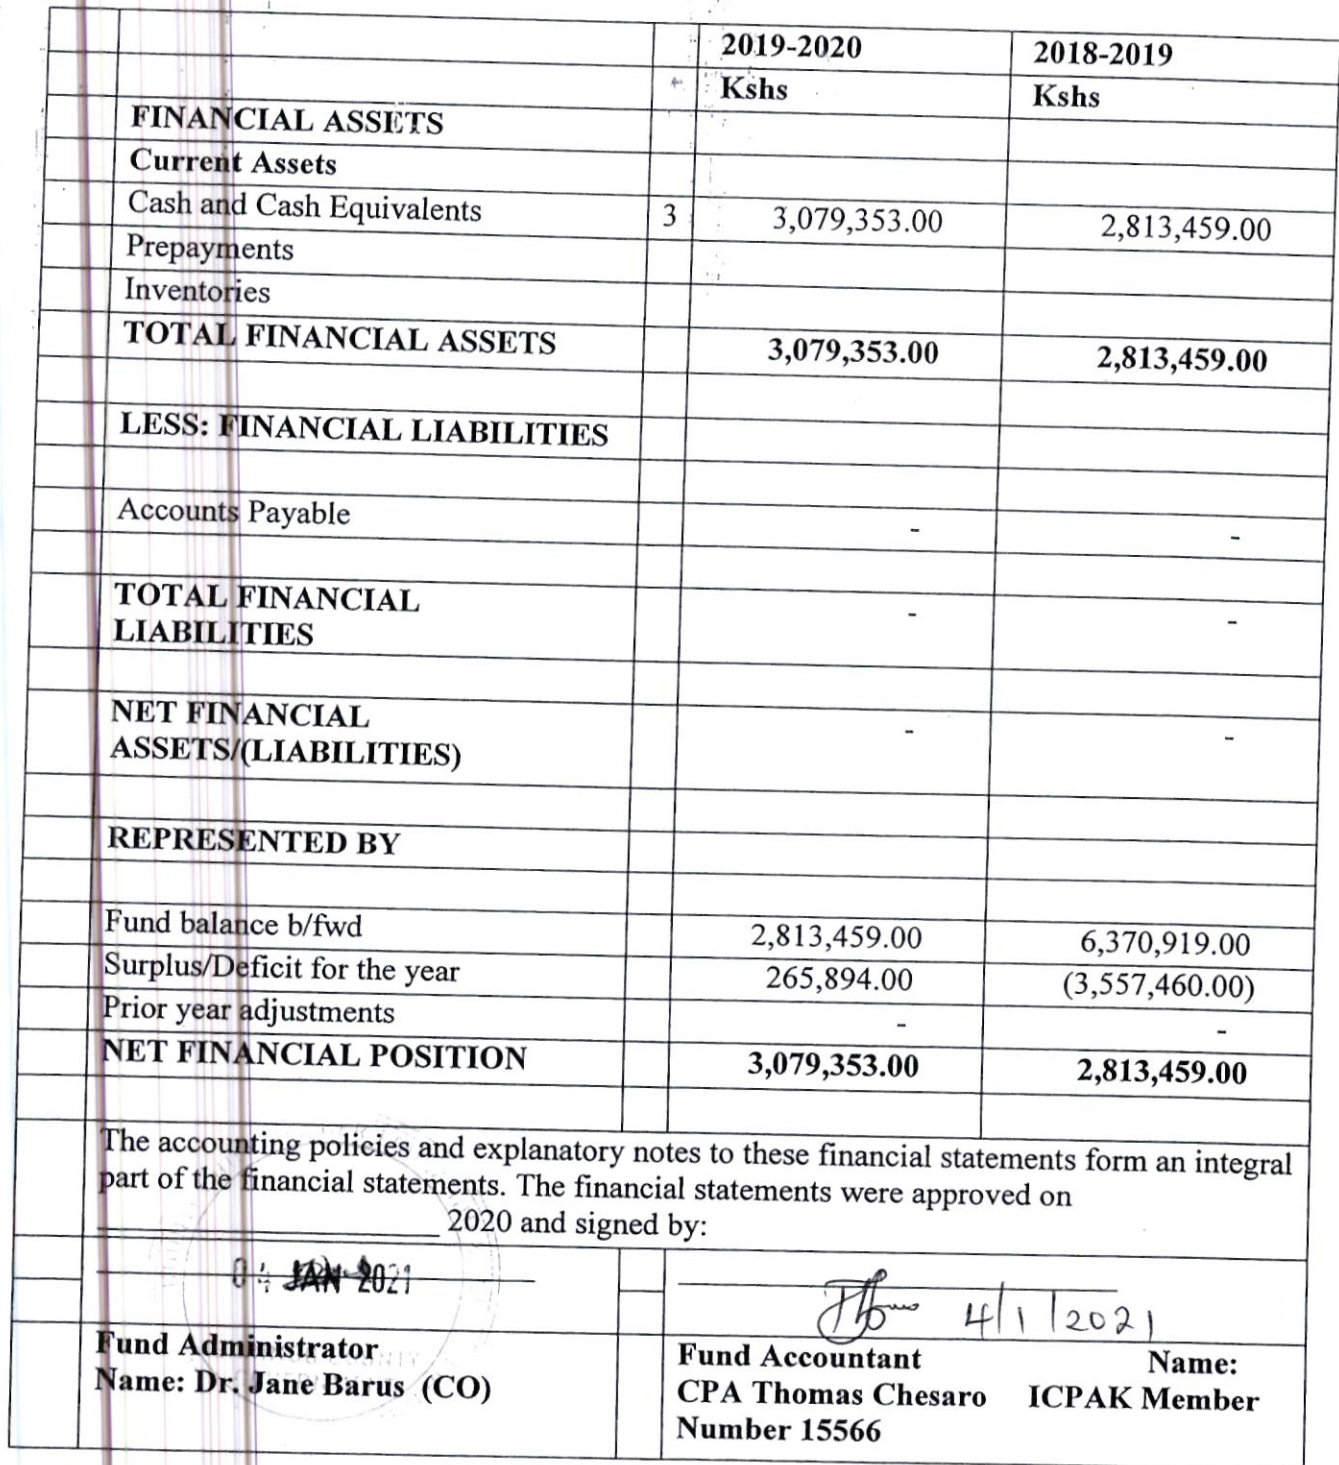 2019-2020 2018-2019
Kshs Kshs
FINANCIAL ASSETS
Current Assets
Cash and Cash Equivalents 3 3,079,353.00 2,813,459.00
Prepayments
Inventories
TOTAL FINANCIAL ASSETS 3,079,353.00 2,813,459.00
LESS: FINANCIAL LIABILITIES
Accounts Payable - -
TOTAL FINANCIAL - -
LIABILITIES
NET FINANCIAL - -
ASSETS/(LIABILITIES)
REPRESENTED BY
Fund balance b/fwd 2,813,459.00 6,370,919.00
Surplus/Deficit for the year 265,894.00 (3,557,460.00)
Prior year adjustments - -
NET FINANCIAL POSITION 3,079,353.00 2,813,459.00
The accounting policies and explanatory notes to these financial statements form an integral
part of the financial statements. The financial statements were approved on
2020 and signed by:
04 JAN 2021
4/1/2021
Fund Administrator
Name: Dr. Jane Barus (CO)
Fund Accountant Name:
CPA Thomas Chesaro ICPAK Member
Number 15566